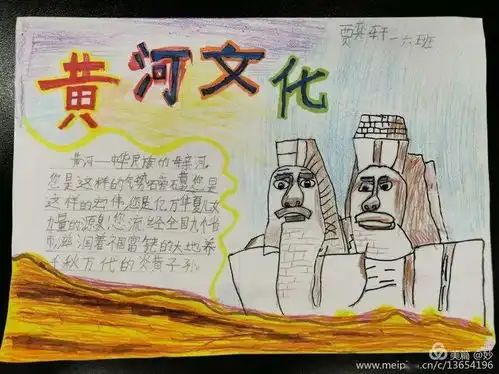 黄河文化
贾奕轩一六班
黄河——中华民族的母亲河。
您是这样的气势磅礴,您是
这样的宏伟,您是亿万华夏儿女
力量的源泉!您流经全国九个省
份,滋润着祖国的大地,养
千秋万代的炎黄子孙。
美篇 @妙
www.meip
.cn/c/13654196